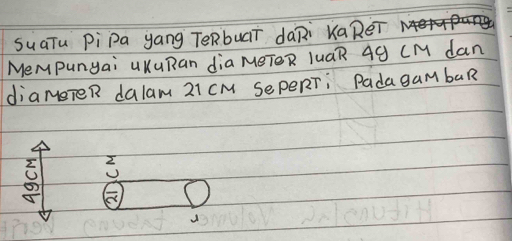 Suatu Pipa yang TeRbuaT daRi KaReT
MeMpunyai ukuRan diaMeTeR luaR 49 CM dan
diaMeTeR dalam 21 CM SePeRTi Pada gambaR
49CM
21 CM